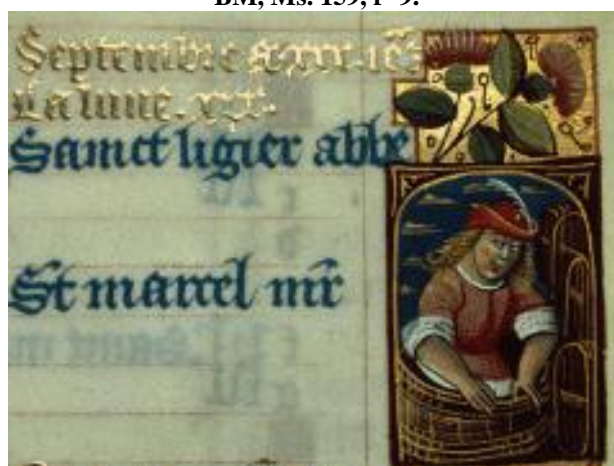 BM, Ms. 139, f° 9.
Septembre a xxx. iēs
La lune. xxx.
Sanct ligier abbe
St marcel mr̄